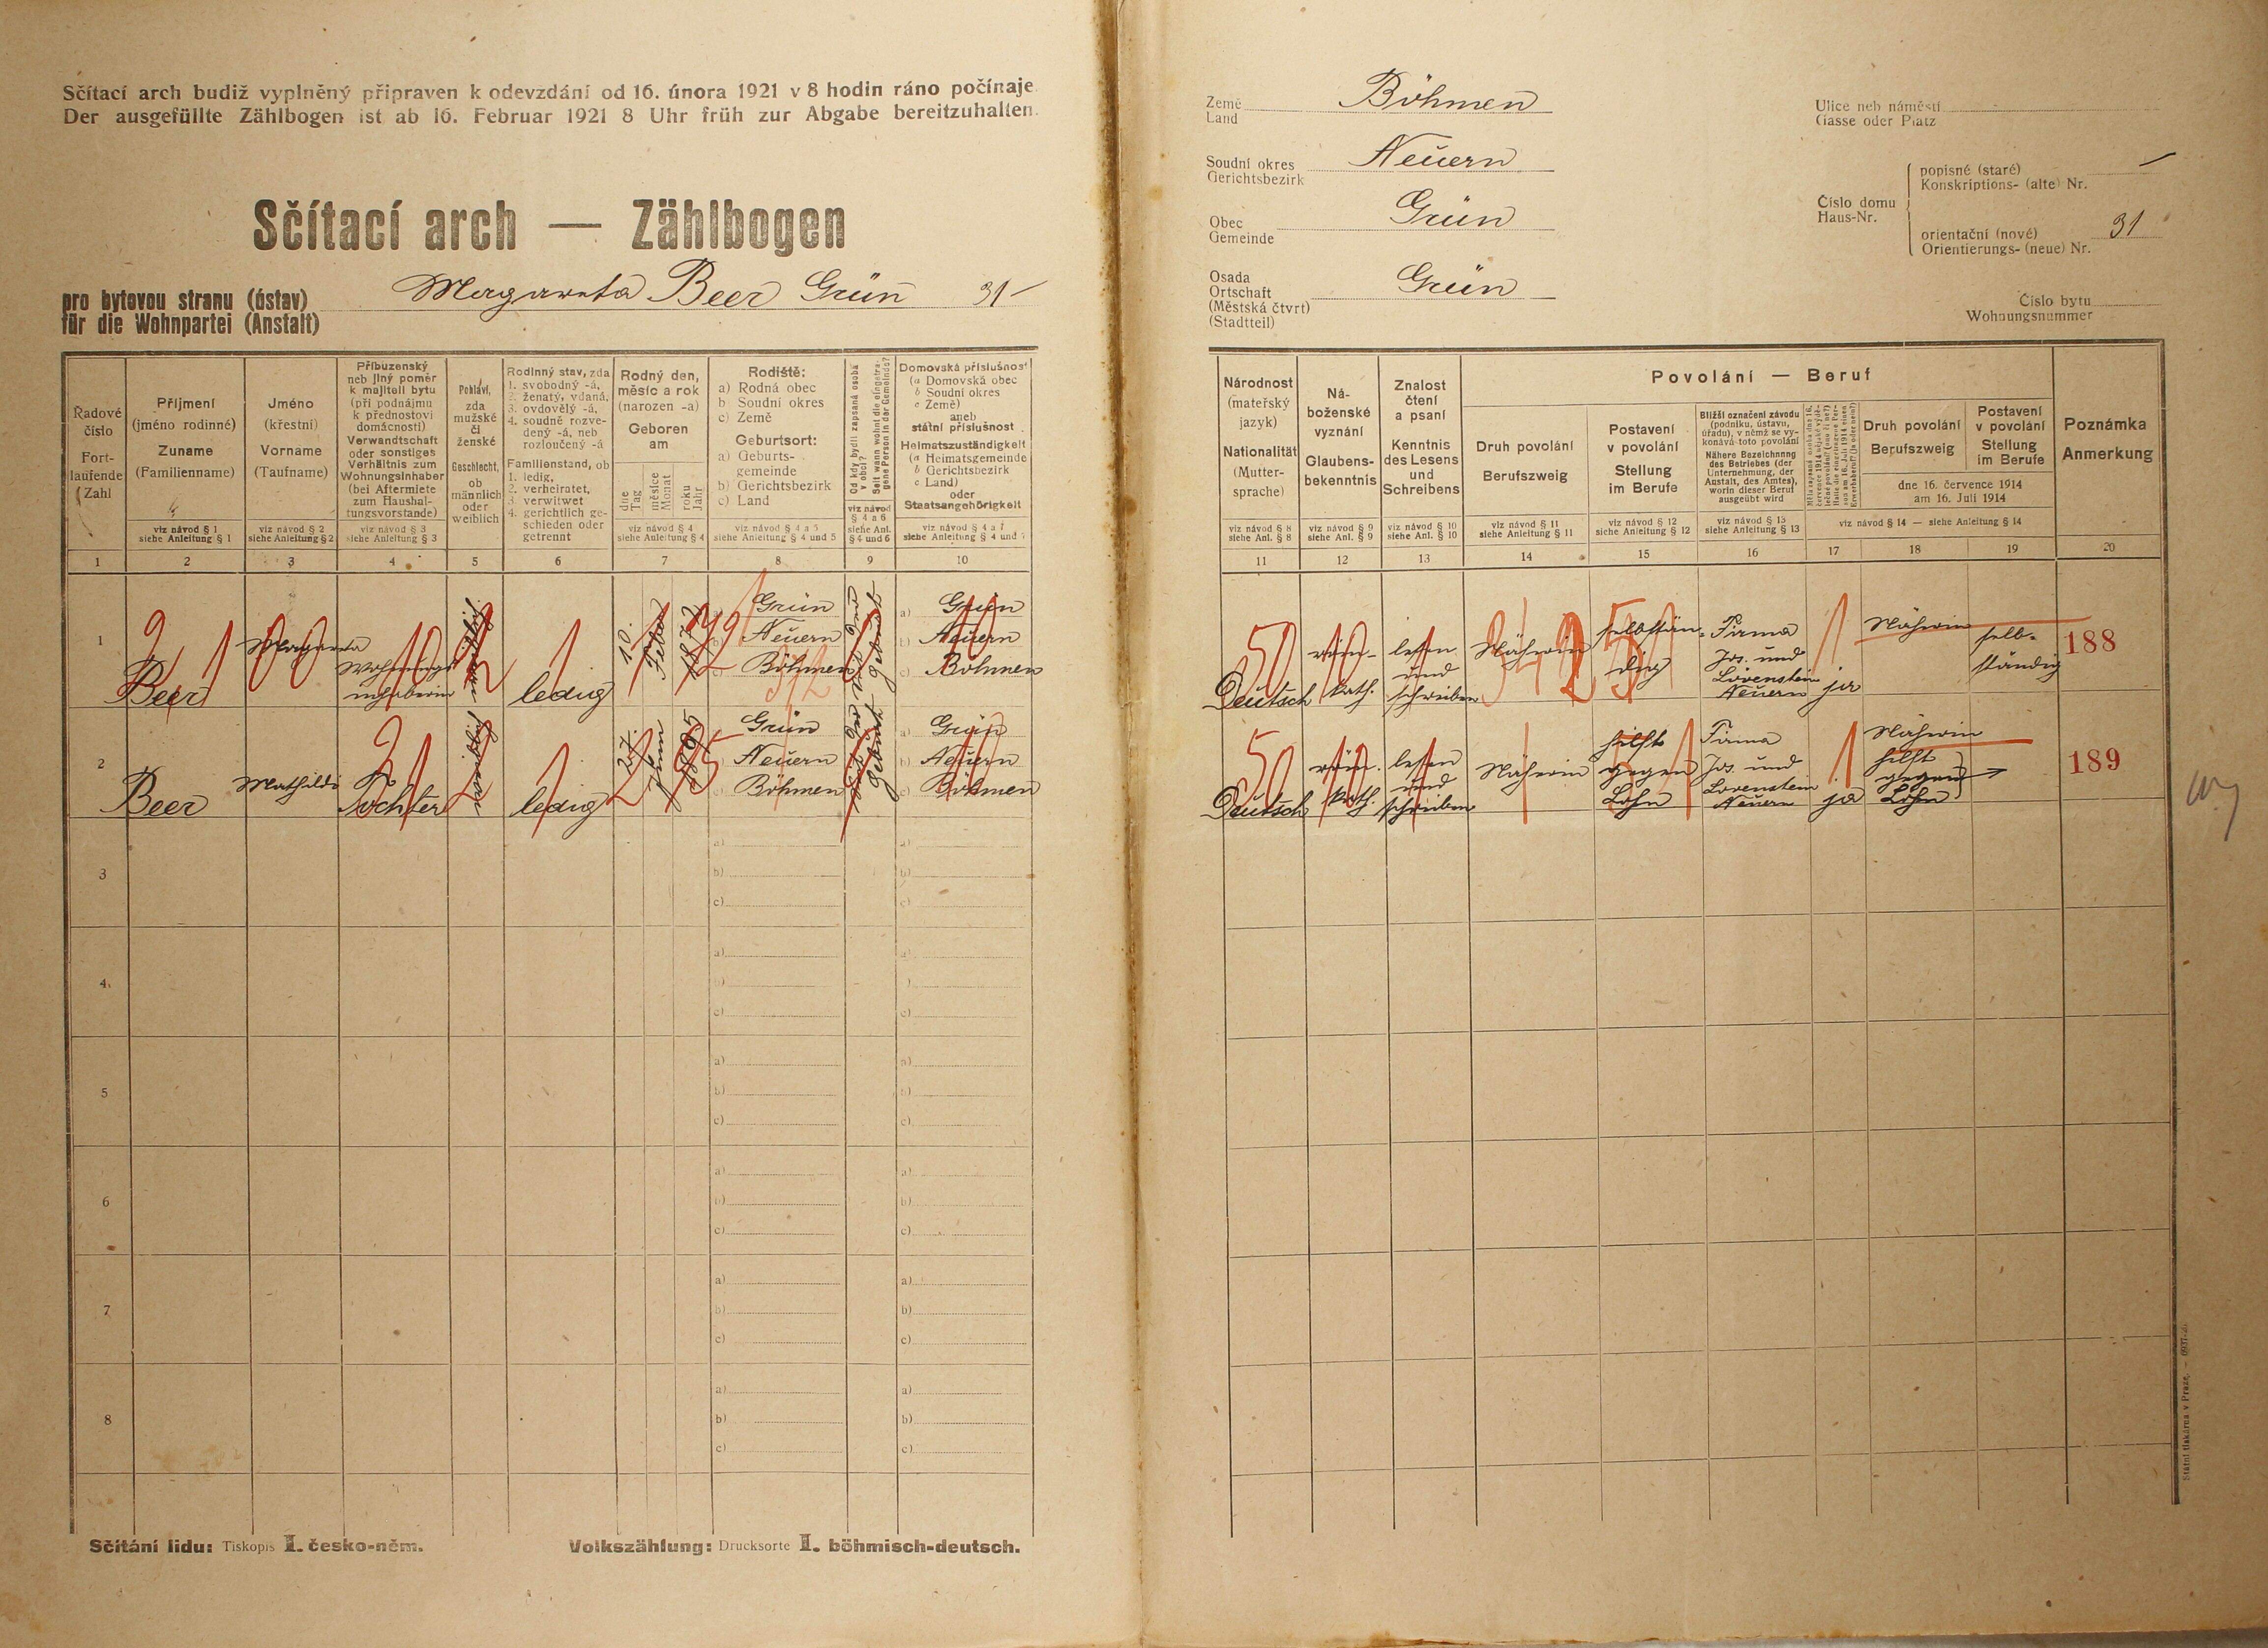 Sčítací arch budiž vyplněný připraven k odevzdání od 16. února 1921 v 8 hodin ráno počínaje.
Der ausgefüllte Zählbogen ist ab 16. Februar 1921 8 Uhr früh zur Abgabe bereitzuhalten.
Sčítací arch — Zählbogen
pro bytovou stranu (ústav)
für die Wohnpartei (Anstalt)
Margareta Beer Grün 31
Řadové číslo
Fortlaufende Zahl
1
Příjmení
(jméno rodinné)
Zuname
(Familienname)
viz návod § 1
siehe Anleitung § 1
2
Jméno
(křestní)
Vorname
(Taufname)
viz návod § 2
siehe Anleitung § 2
3
Příbuzenský
neb jiný poměr
k majiteli bytu
(při podnájmu
k přednostovi
domácnosti)
Verwandtschaft
oder sonstiges
Verhältnis zum
Wohnungsinhaber
(bei Aftermiete
zum Haushal-
tungsvorstande)
viz návod § 3
siehe Anleitung § 3
4
Pohlaví,
zda
mužské
či
ženské
Geschlecht,
ob
männlich
oder
weiblich
5
Rodinný stav, zda
1. svobodný -á,
2. ženatý, vdaná,
3. ovdovělý -á,
4. soudně rozve-
dený -á, neb
rozloučený -á
Familienstand, ob
1. ledig,
2. verheiratet,
3. verwitwet
4. gerichtlich ge-
schieden oder
getrennt
6
Rodný den,
měsíc a rok
(narozen -a)
Geboren
am
dne Tag
měsíce Monat
roku Jahr
viz návod § 4
siehe Anleitung § 4
7
Rodiště:
a) Rodná obec
b) Soudní okres
c) Země
Geburtsort:
a) Geburts-
gemeinde
b) Gerichtsbezirk
c) Land
viz návod § 4 a 5
siehe Anleitung § 4 und 5
8
Od kdy bydlí zapsaná osoba v obci?
Seit wann wohnt die eingetragene Person in der Gemeinde?
viz návod
§ 4 a 6
siehe Anl.
§ 4 und 6
9
Domovská příslušnost
(a Domovská obec
b Soudní okres
c Země)
aneb
státní příslušnost
Heimatszuständigkeit
(a Heimatsgemeinde
b Gerichtsbezirk
c Land)
oder
Staatsangehörigkeit
viz návod § 4 a 7
siehe Anleitung § 4 und 7
10
1
Beer
Margareta
Wohnungs
inhaberin
weiblich
ledig
10.
Feber
1872
Grün
Neuern
Böhmen
a) Grün
b) Neuern
c) Böhmen
2
Beer
Mathilde
Tochter
weiblich
ledig
27.
Juni
1895
Grün
Neuern
Böhmen
a) Grün
b) Neuern
c) Böhmen
3
4
5
6
7
8
Sčítání lidu: Tiskopis I. česko-něm.
Volkszählung: Drucksorte I. böhmisch-deutsch.
Země
Land
Böhmen
Soudní okres
Gerichtsbezirk
Neuern
Obec
Gemeinde
Grün
Osada
Ortschaft
(Městská čtvrť)
(Stadtteil)
Grün
Ulice neb náměstí
Gasse oder Platz
Číslo domu
Haus-Nr.
popisné (staré)
Konskriptions- (alte) Nr.
orientační (nové)
Orientierungs- (neue) Nr.
31
Číslo bytu
Wohnungsnummer
Národnost
(mateřský
jazyk)
Nationalität
(Mutter-
sprache)
viz návod § 8
siehe Anl. § 8
11
Ná-
boženské
vyznání
Glaubens-
bekenntnis
viz návod § 9
siehe Anl. § 9
12
Znalost
čtení
a psaní
Kenntnis
des Lesens
und
Schreibens
viz návod § 10
siehe Anl. § 10
13
Povolání — Beruf
Druh povolání
Berufszweig
viz návod § 11
siehe Anleitung § 11
14
Postavení
v povolání
Stellung
im Berufe
viz návod § 12
siehe Anleitung § 12
15
Bližší označení závodu
(podniku, ústavu,
úřadu), v němž se vy-
konává toto povolání
Nähere Bezeichnung
des Betriebes (der
Unternehmung, der
Anstalt, des Amtes),
worin dieser Beruf
ausgeübt wird
viz návod § 13
siehe Anleitung § 13
16
17
Druh povolání
Berufszweig
Postavení
v povolání
Stellung
im Berufe
dne 16. července 1914
am 16. Juli 1914
viz návod § 14 — siehe Anleitung § 14
18
19
Poznámka
Anmerkung
20
Deutsch
röm.-
kath.
lesen
und
schreiben
Näherin
selbstän-
dig
Firma
Jos. und
Lövenstein
Neuern
ja
Näherin
selb-
ständig
188
Deutsch
röm.
kath.
lesen
und
schreiben
Näherin
hilft
gegen
Lohn
Firma
Jos. und
Lövenstein
Neuern
ja
Näherin
hilft
gegen
Lohn
189
Státní tiskárna v Praze.